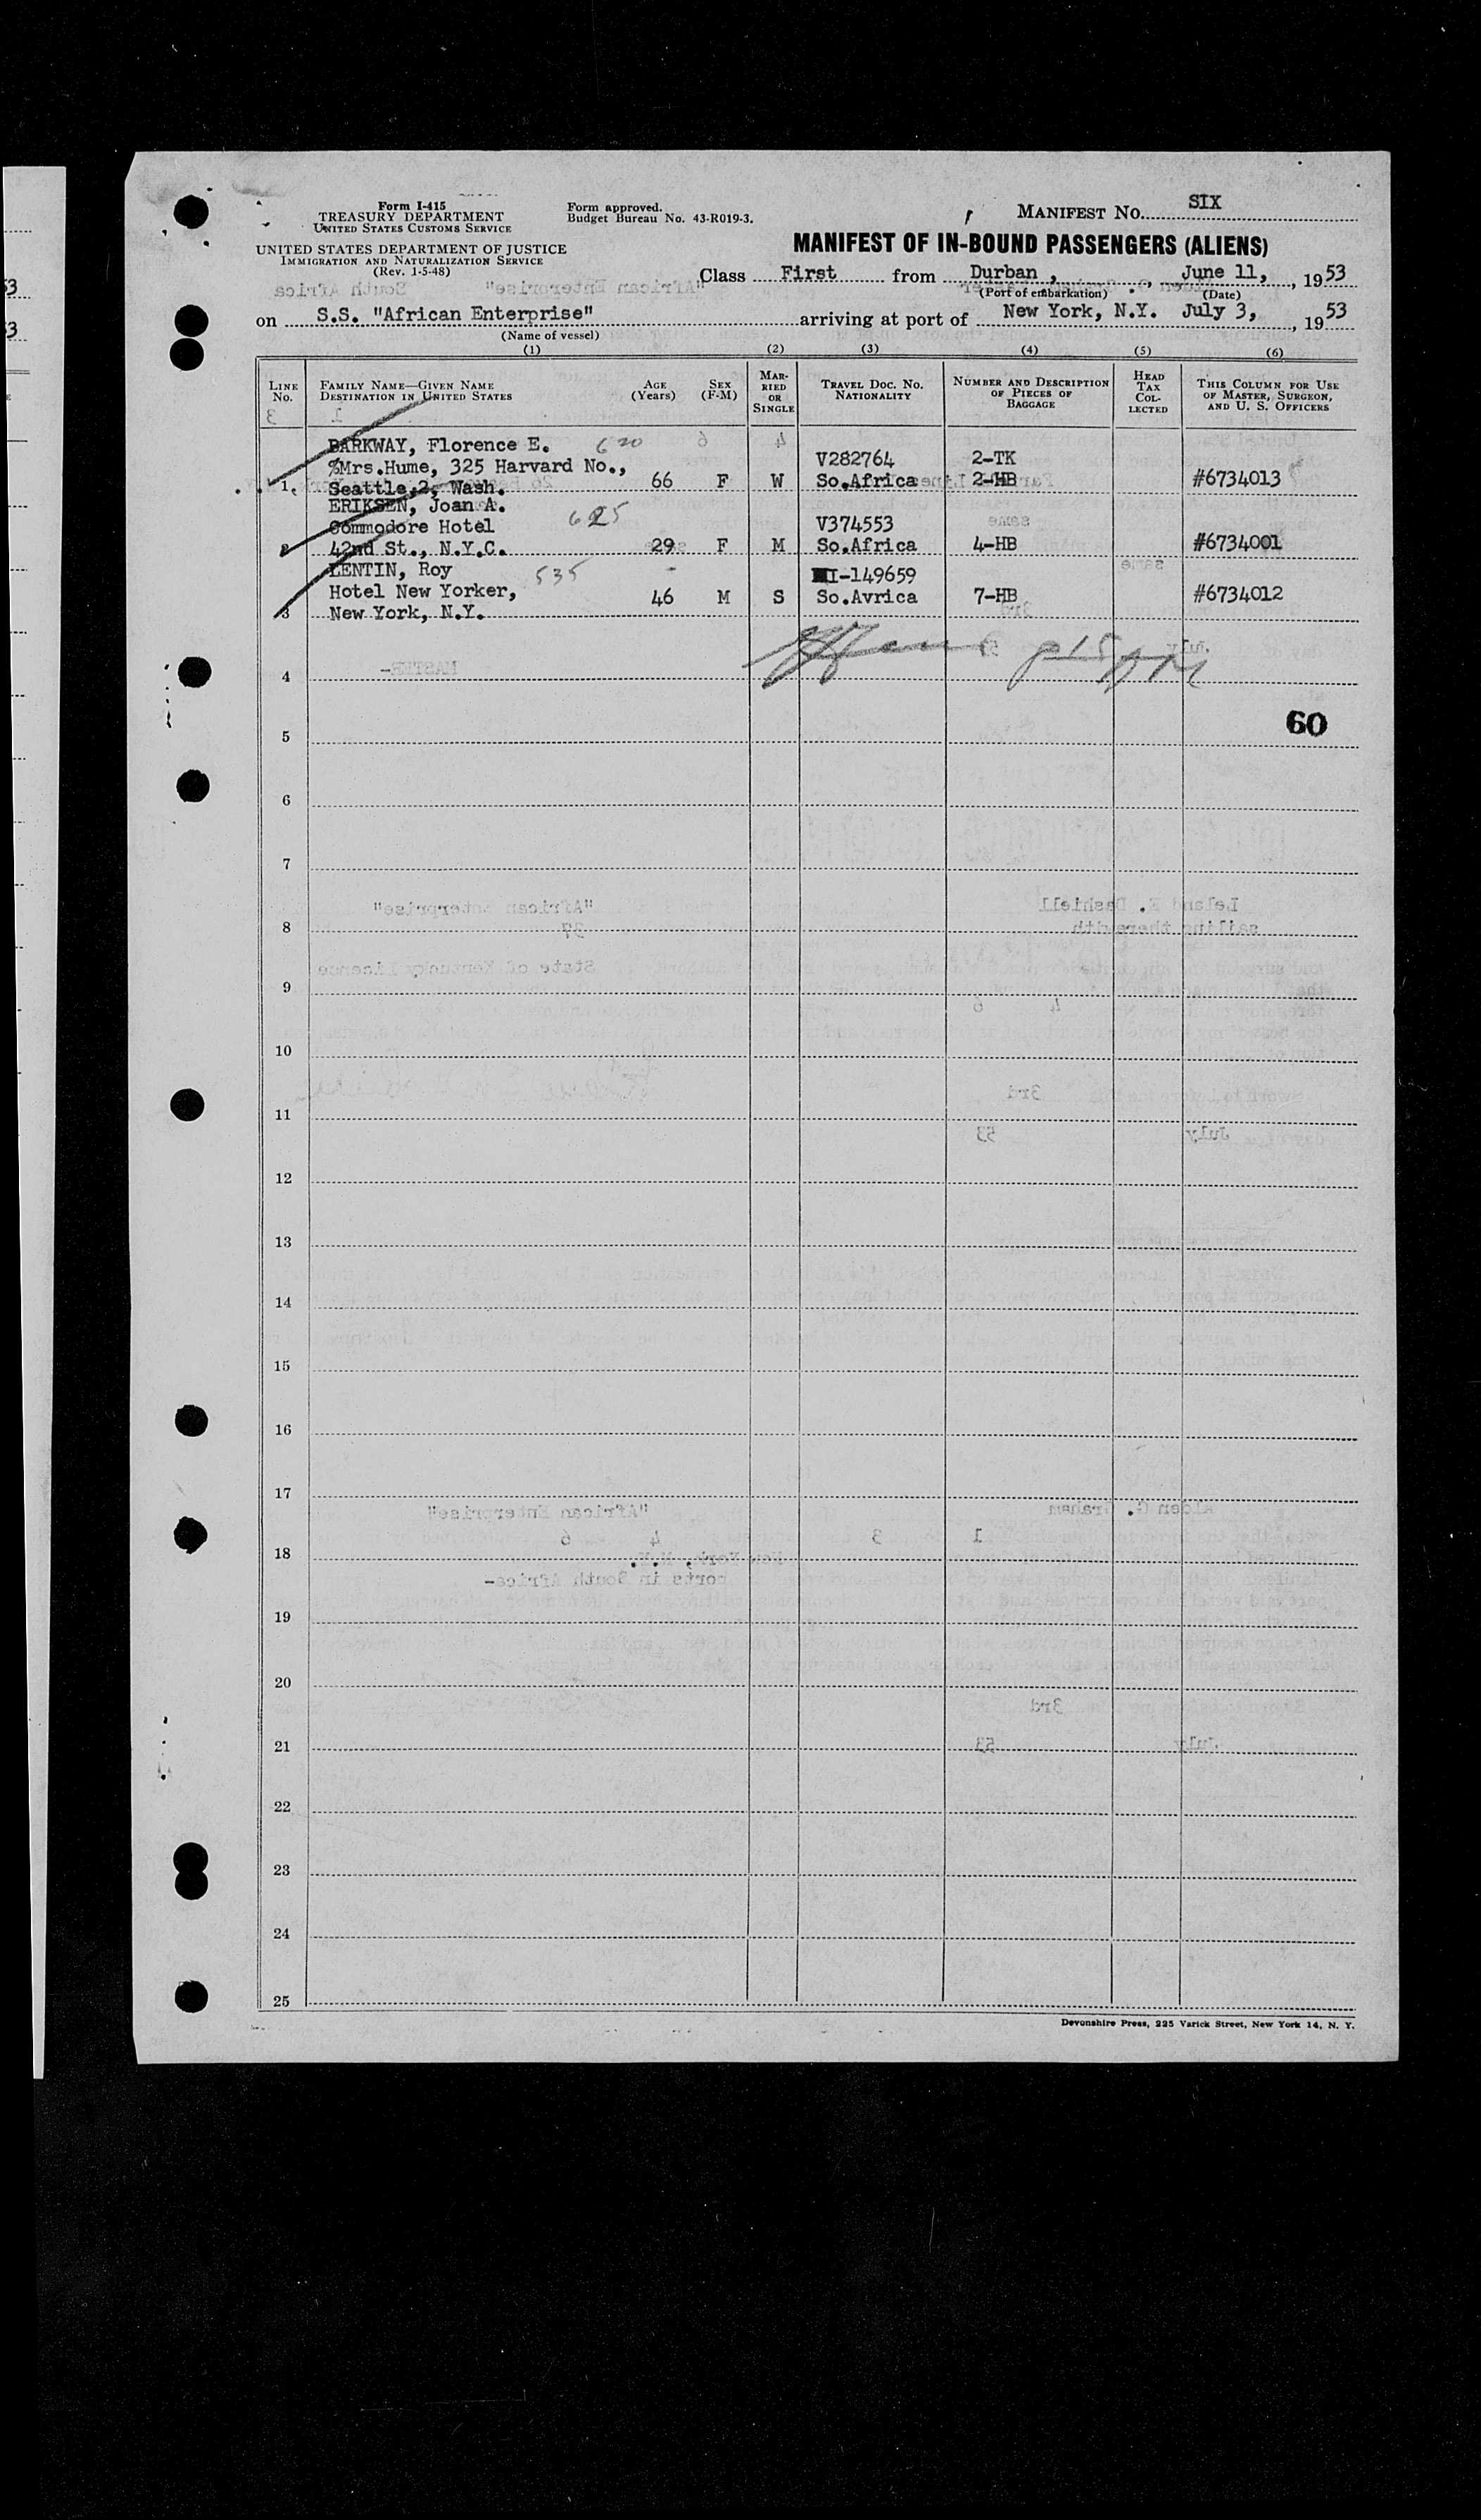 Form I-415
TREASURY DEPARTMENT
UNITED STATES CUSTOMS SERVICE
UNITED STATES DEPARTMENT OF JUSTICE
IMMIGRATION AND NATURALIZATION SERVICE
(Rev. 1-5-48)
Form approved.
Budget Bureau No. 43-R019-3.
MANIFEST NO. SIX
MANIFEST OF IN-BOUND PASSENGERS (ALIENS)
Class First from Durban , , June 11, , 1953
(Port of embarkation) (Date)
on S.S. "African Enterprise" arriving at port of New York, N.Y. July 3, , 1953
(Name of vessel)
(1) (2) (3) (4) (5) (6)
LINE NO.
FAMILY NAME—GIVEN NAME
DESTINATION IN UNITED STATES
AGE (Years)
SEX (F-M)
MARRIED OR SINGLE
TRAVEL DOC. NO. NATIONALITY
NUMBER AND DESCRIPTION OF PIECES OF BAGGAGE
HEAD TAX COLLECTED
THIS COLUMN FOR USE OF MASTER, SURGEON, AND U. S. OFFICERS
BARKWAY, Florence E. 620
%Mrs.Hume, 325 Harvard No., V282764 2-TK
1 Seattle,2, Wash. 66 F W So.Africa 2-HB #6734013
ERIKSEN, Joan A.
Commodore Hotel 625 V374553
2 42nd St., N.Y.C. 29 F M So.Africa 4-HB #6734001
LENTIN, Roy 535 I-149659
Hotel New Yorker, 46 M S So.Avrica 7-HB #6734012
3 New York, N.Y.
4
60
5
6
7
8
9
10
11
12
13
14
15
16
17
18
19
20
21
22
23
24
25
Devonshire Press, 225 Varick Street, New York 14, N. Y.